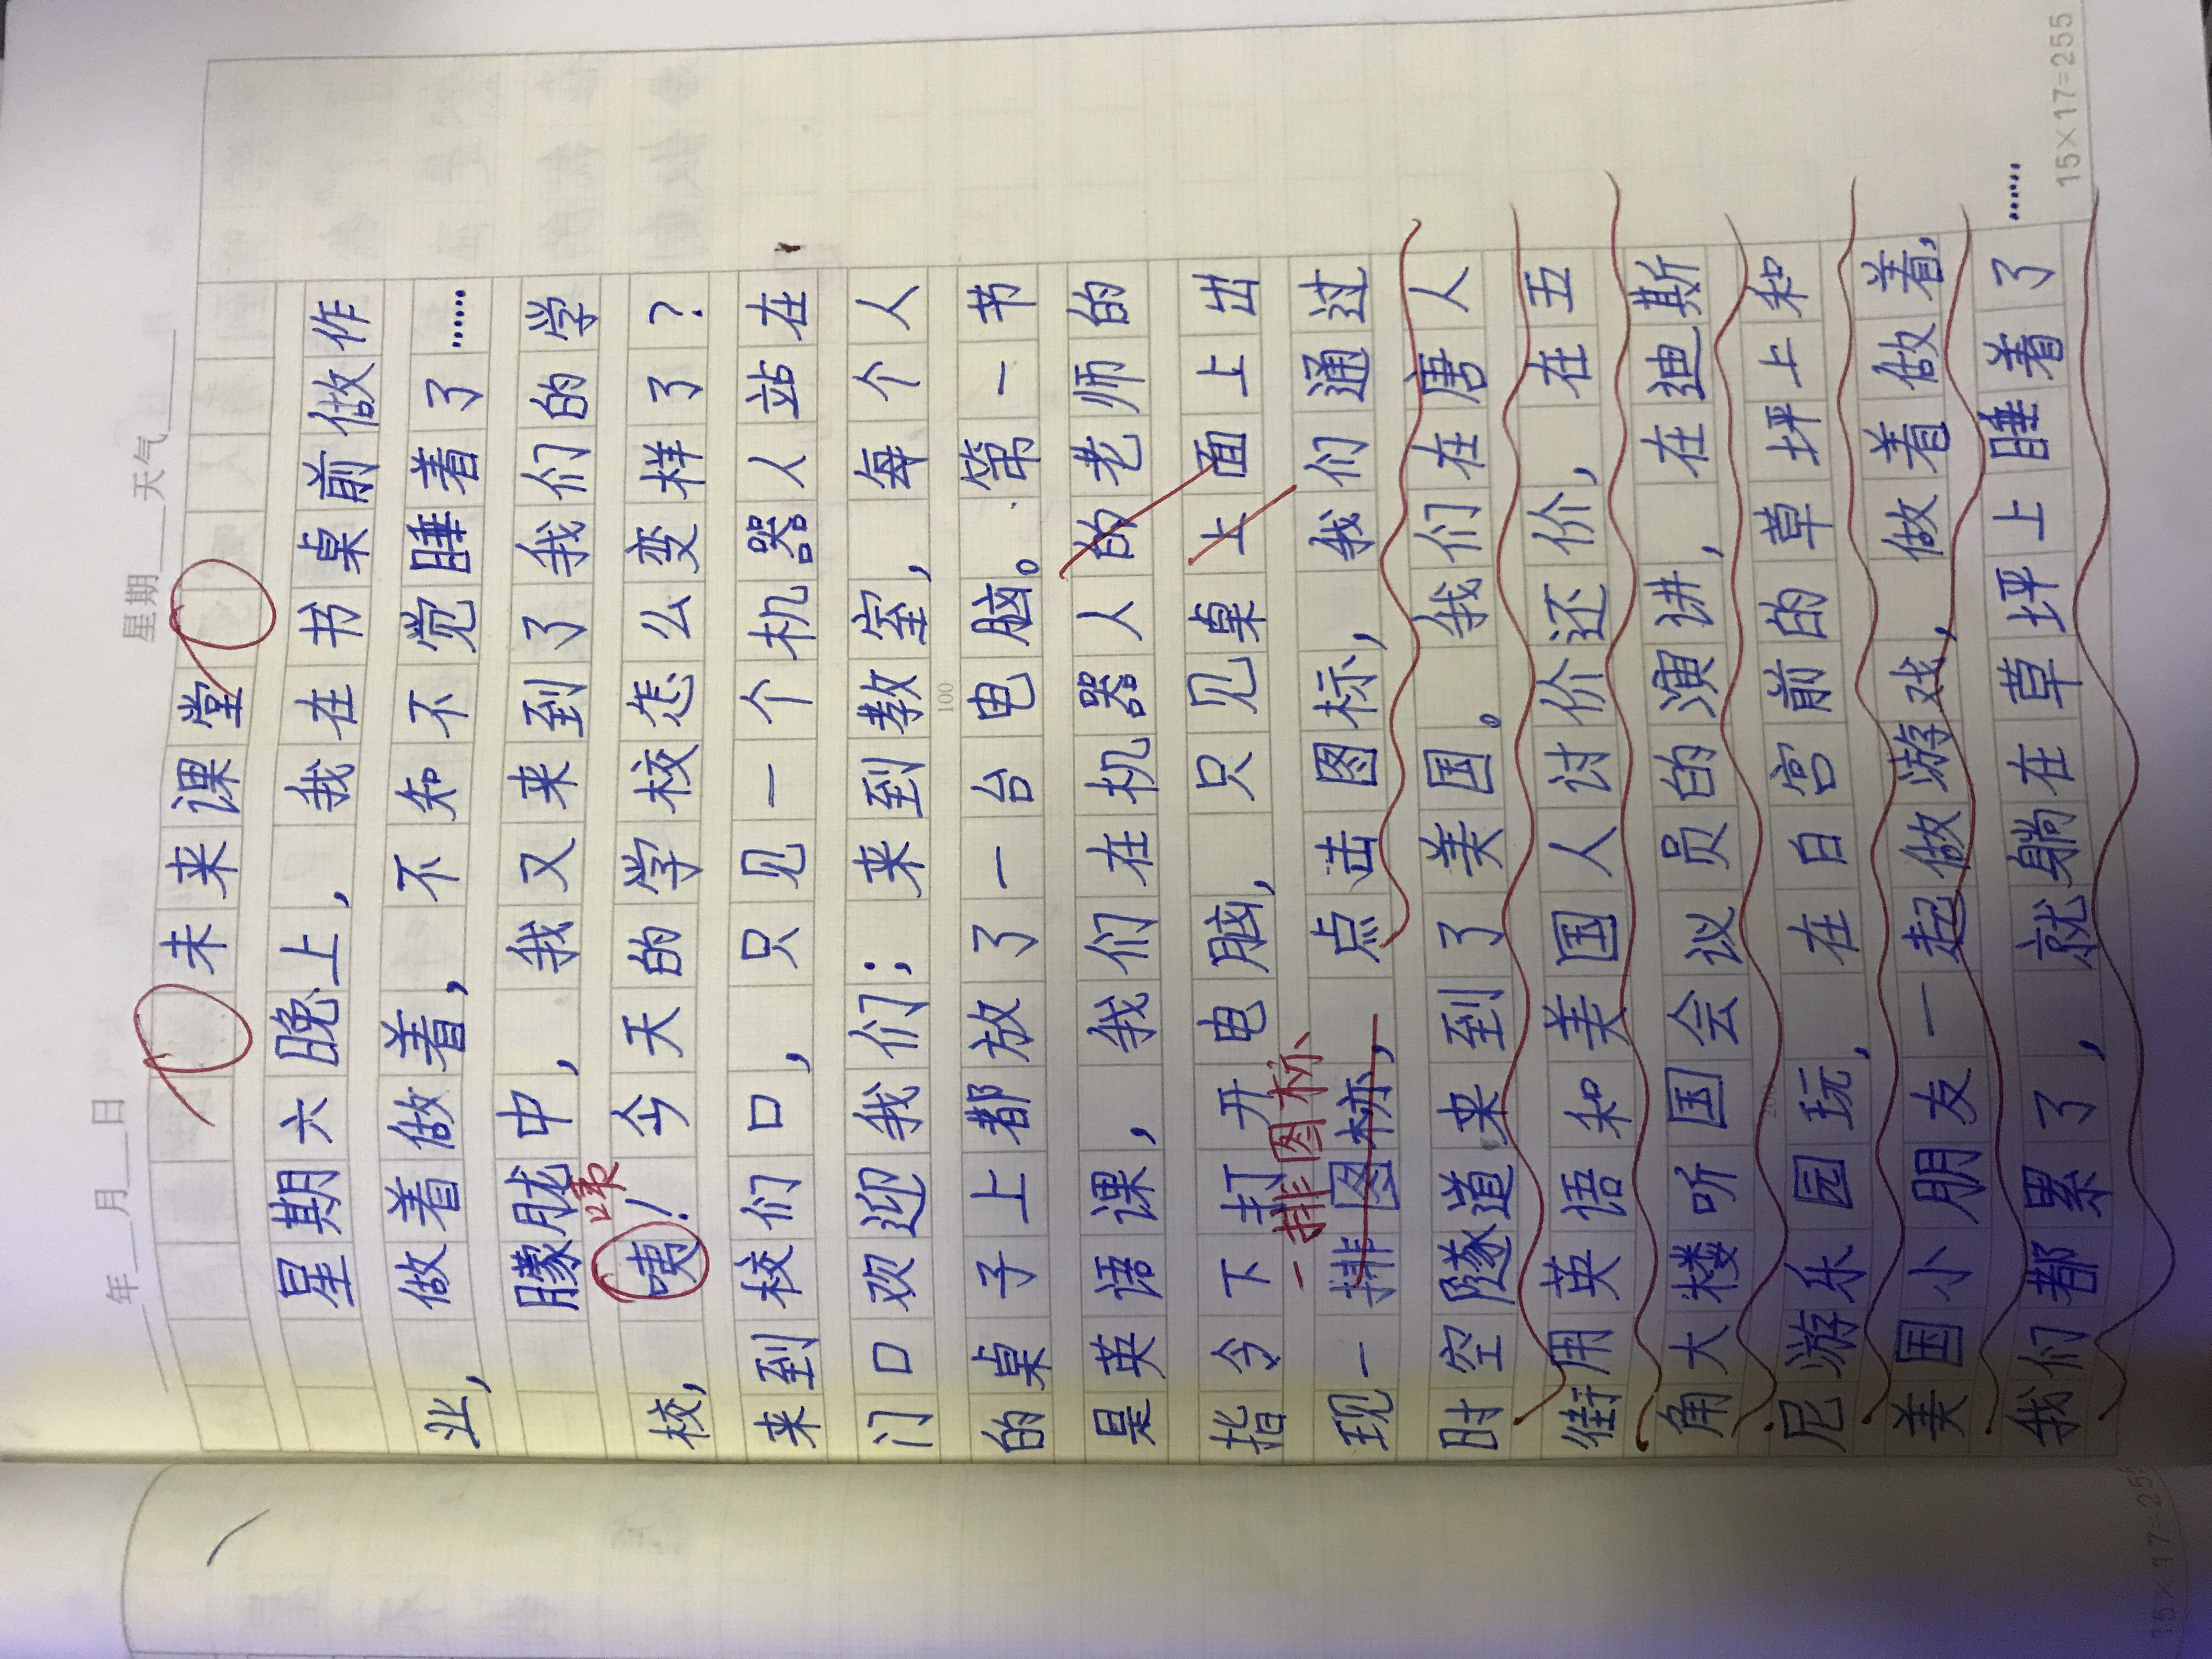 年 月 日 星期 天气
未来课堂
星期六晚上，我在书桌前做作
业，做着做着，不知不觉睡着了……
朦胧中，我又来到了我们的学
校，咦！今天的学校怎么变样了？
咦
来到校们口，只见一个机器人站在
门口欢迎我们；来到教室，每个人
的桌子上都放了一台电脑。第一书
100
是英语课，我们在机器人的老师的
指令下打开电脑，只见桌上面上出
一排图标
现一排图标，点击图标，我们通过
时空隧道来到了美国。我们在唐人
街用英语和美国人讨价还价，在五
角大楼听国会议员的演讲，在迪斯
尼游乐园玩，在白宫前的草坪上和
美国小朋友一起做游戏，做着做着，
我们都累了，就躺在草坪上睡着了……
15×17=255
15×17=255